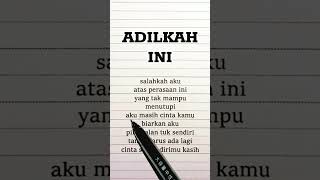 ADILKAH
INI
salahkah aku
atas perasaan ini
yang tak mampu
menutupi
aku masih cinta kamu
biarkan aku
tuk sendiri
ada lagi
cinta kasih